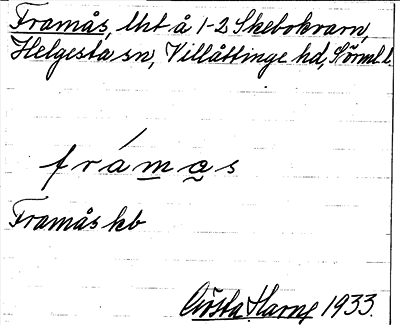 Framås, lht å 1-2 Skebokvarn,
Helgesta sn, Villåttinge hd, Sörml. l.
frámas
Framås kb
Gösta Harne 1933.